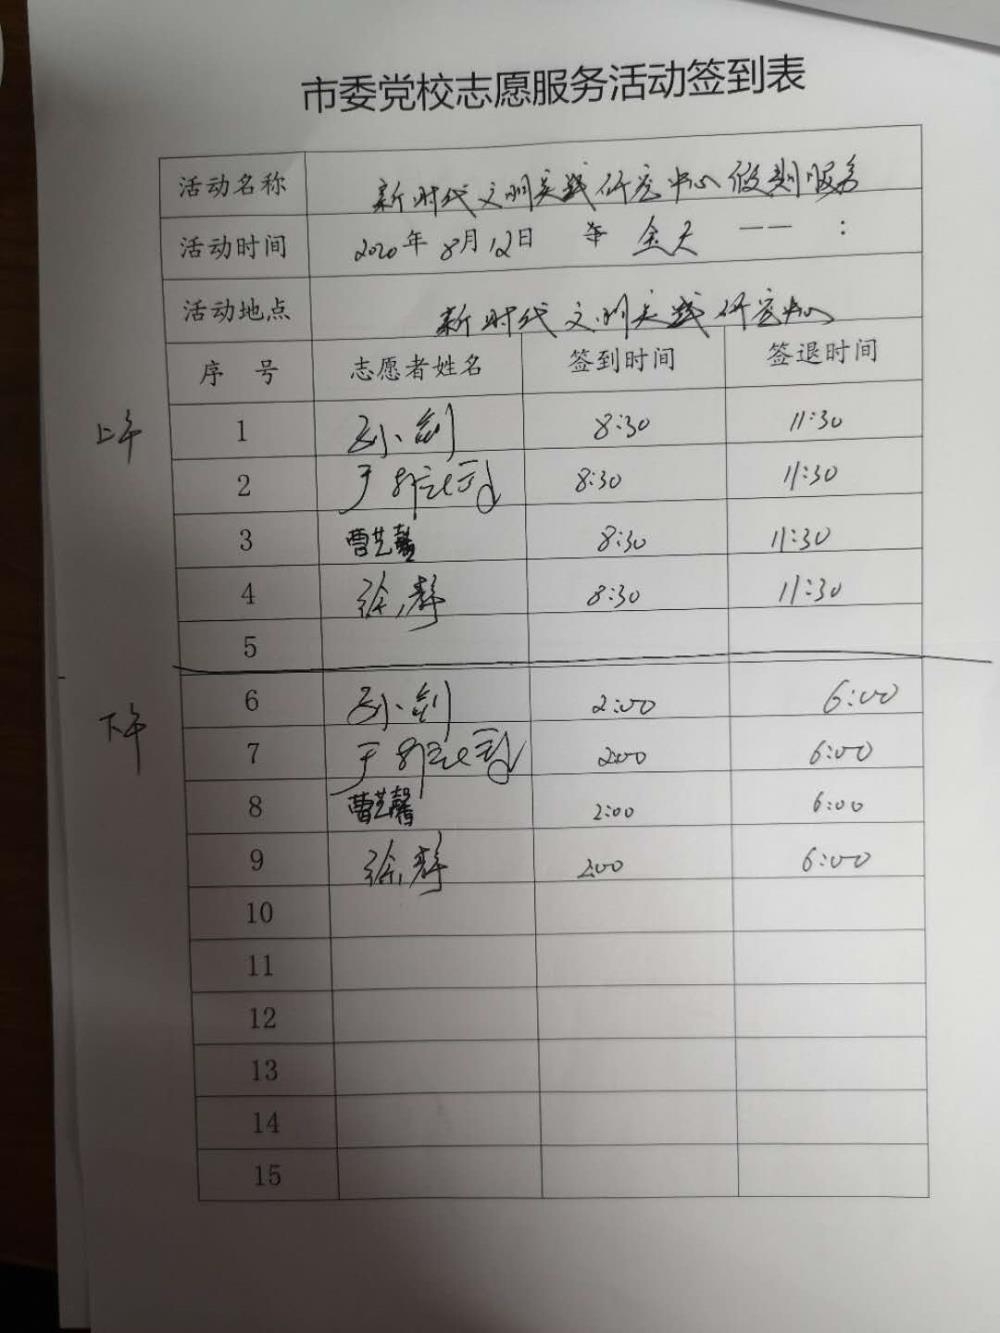 市委党校志愿服务活动签到表
活动名称 新时代文明实践研究中心假期服务
活动时间 2020年8月12日 全天 —— :
活动地点 新时代文明实践研究中心
序 号 志愿者姓名 签到时间 签退时间
上午
1 孙剑 8:30 11:30
2 于 8:30 11:30
3 曹艺馨 8:30 11:30
4 徐静 8:30 11:30
5
下午
6 孙剑 2:00 6:00
7 于 2:00 6:00
8 曹艺馨 2:00 6:00
9 徐静 2:00 6:00
10
11
12
13
14
15